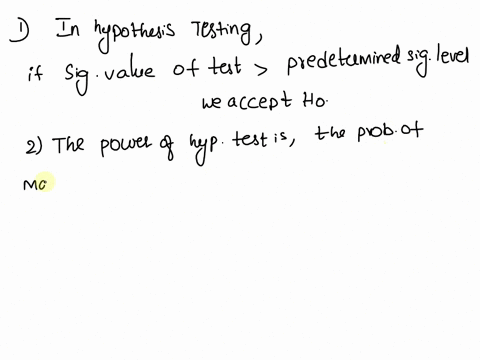 1) In hypothesis Testing,
if Sig. value of test > predetermined sig. level
we accept Ho.
2) The power of hyp. test is, the prob. of
ma